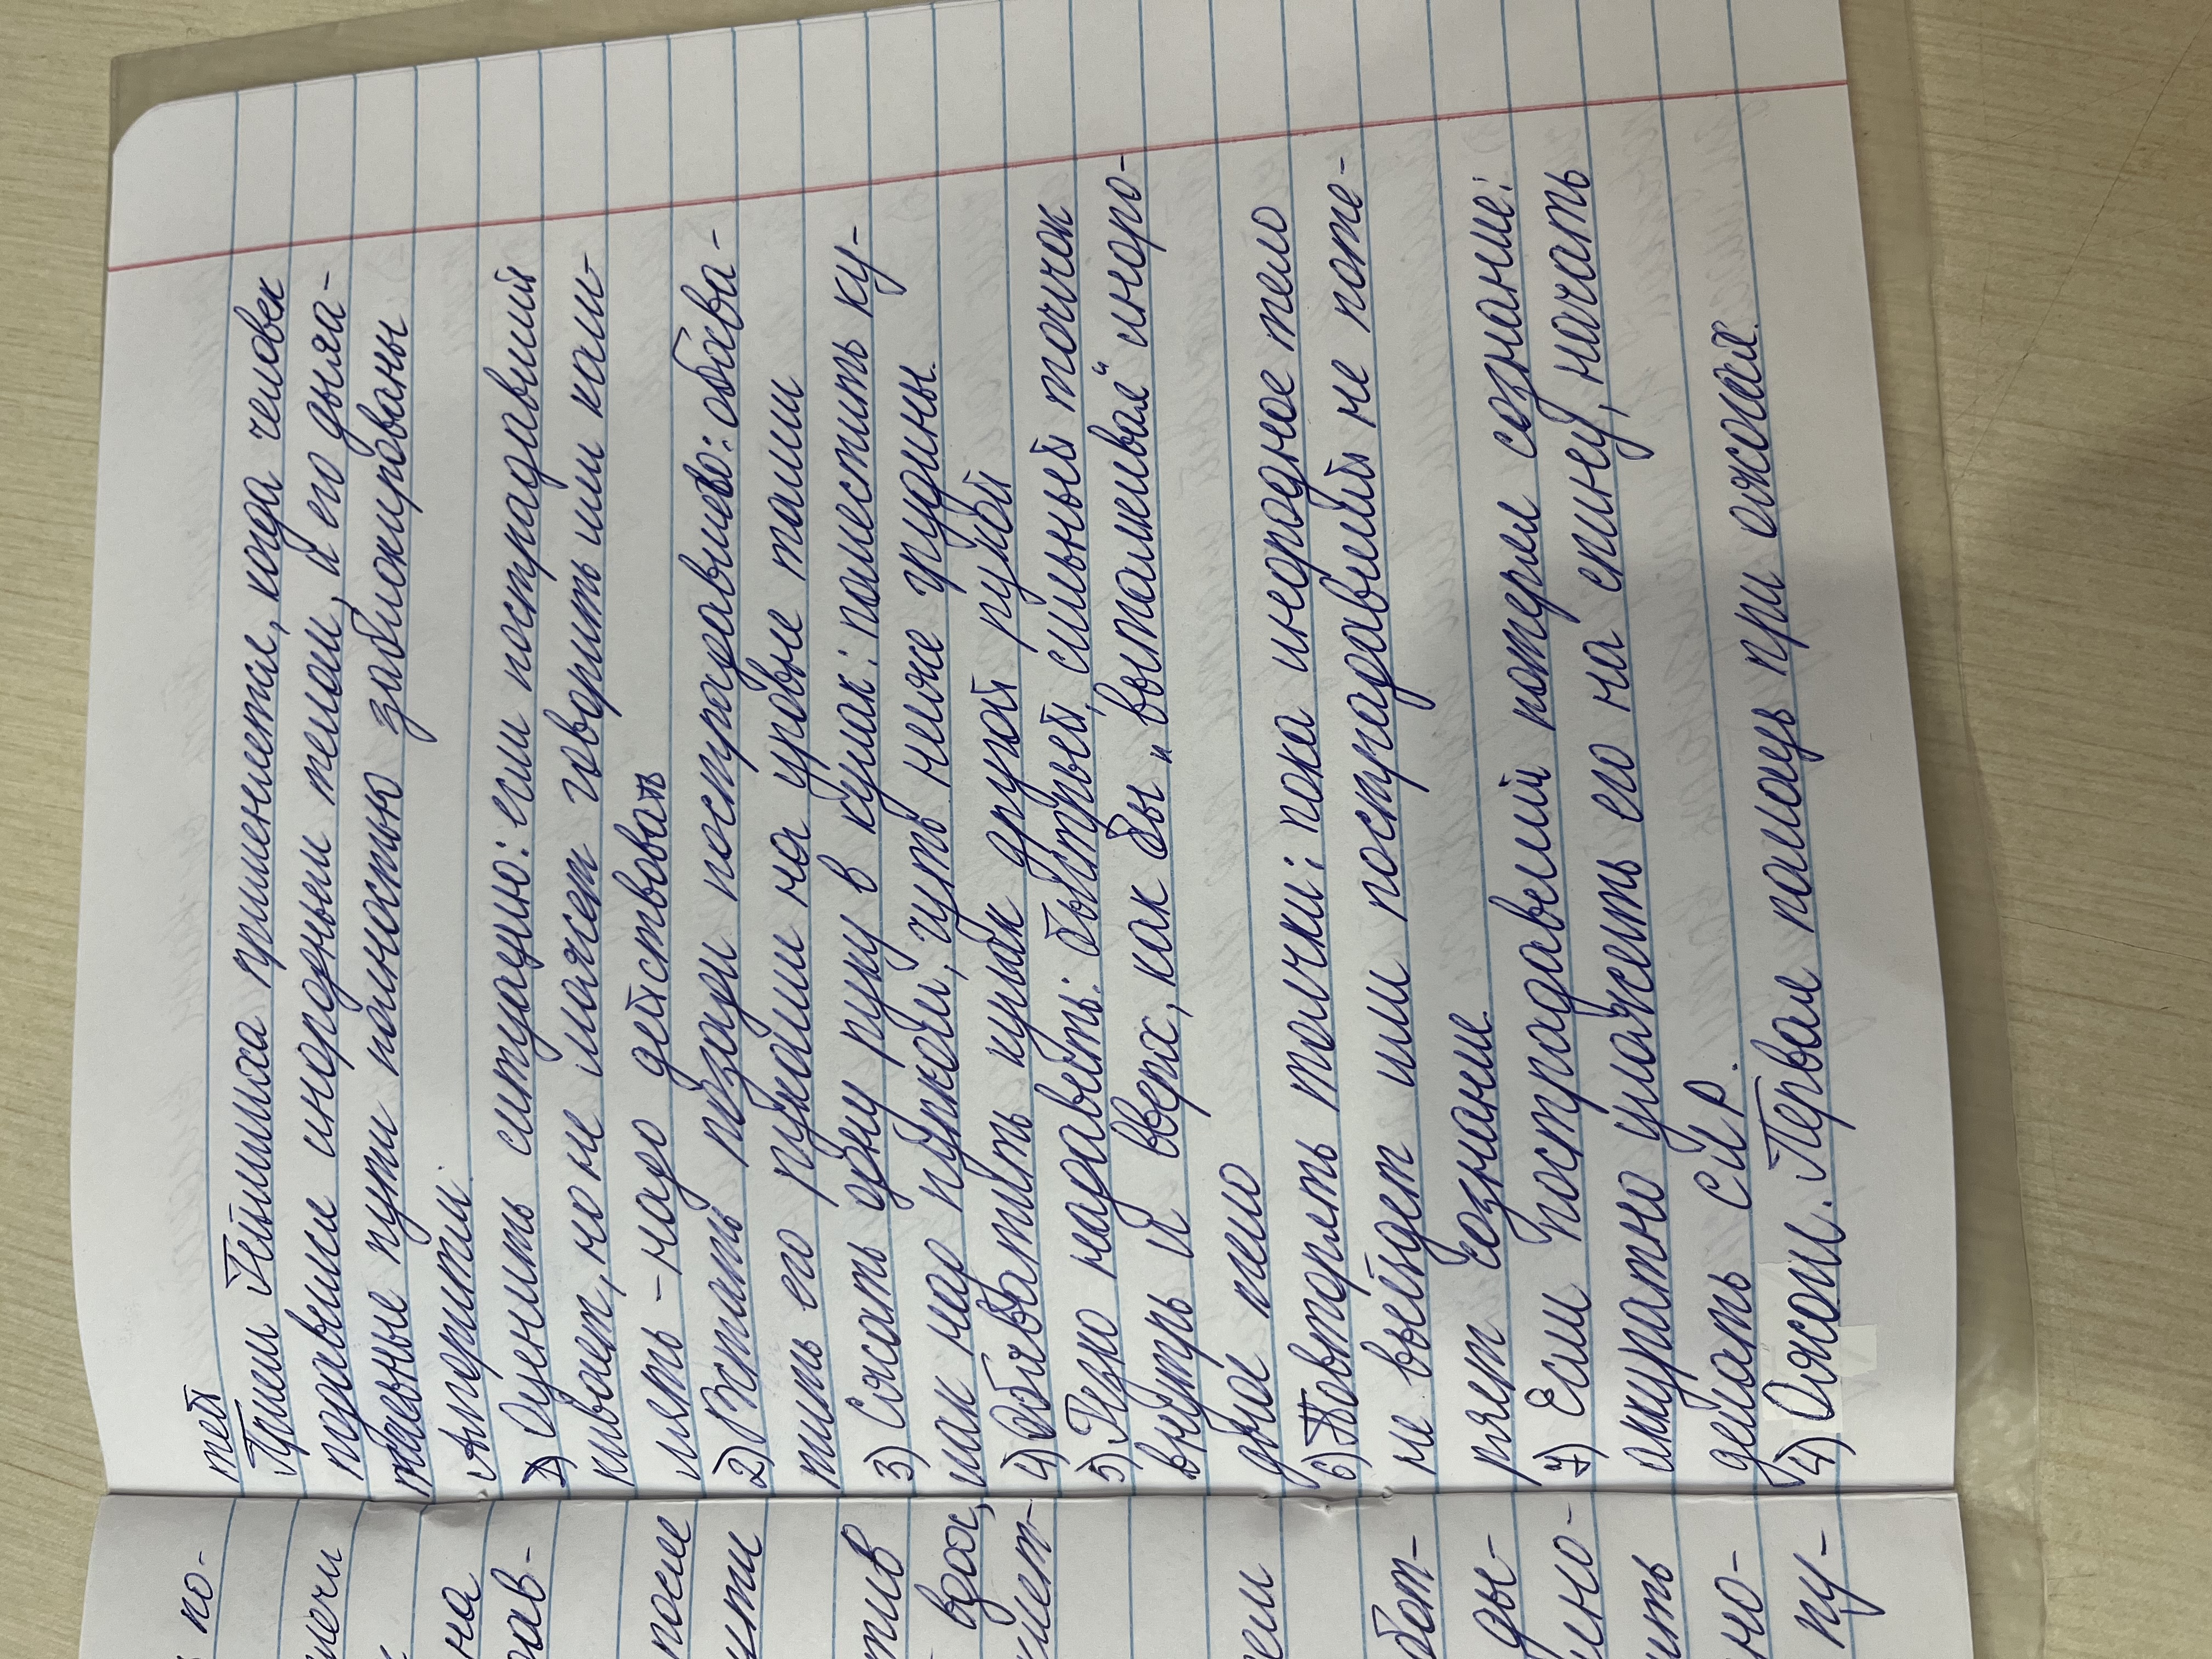 тел
Прием Геймлиха применяется, когда человек
подавился инородным телом, и его дыха-
тельные пути полностью заблокированы
Алгоритм.
1) Оценить ситуацию: если пострадавший
кивает, но не может говорить или каш-
лять - надо действовать
2) Встать позади пострадавшего: обхва-
тить его руками на уровне талии
3) Сжать одну руку в кулак: поместить ку-
лак над пупком, чуть ниже грудины.
4) Обхватить кулак другой рукой
5) Резко надавить: быстрый, сильный толчок
внутрь и вверх, как бы „выталкивая“ иноро-
дное тело
6) Повторять толчки: пока инородное тело
не выйдет или пострадавший не поте-
ряет сознание
7) Если пострадавший потерял сознание:
аккуратно уложить его на спину, начать
делать СЛР.
4) Ожоги. Первая помощь при ожогах.
по-
на
рав-
после
ути
тив
вдох,
бот-
ды-
но-
ить
но-
пу-